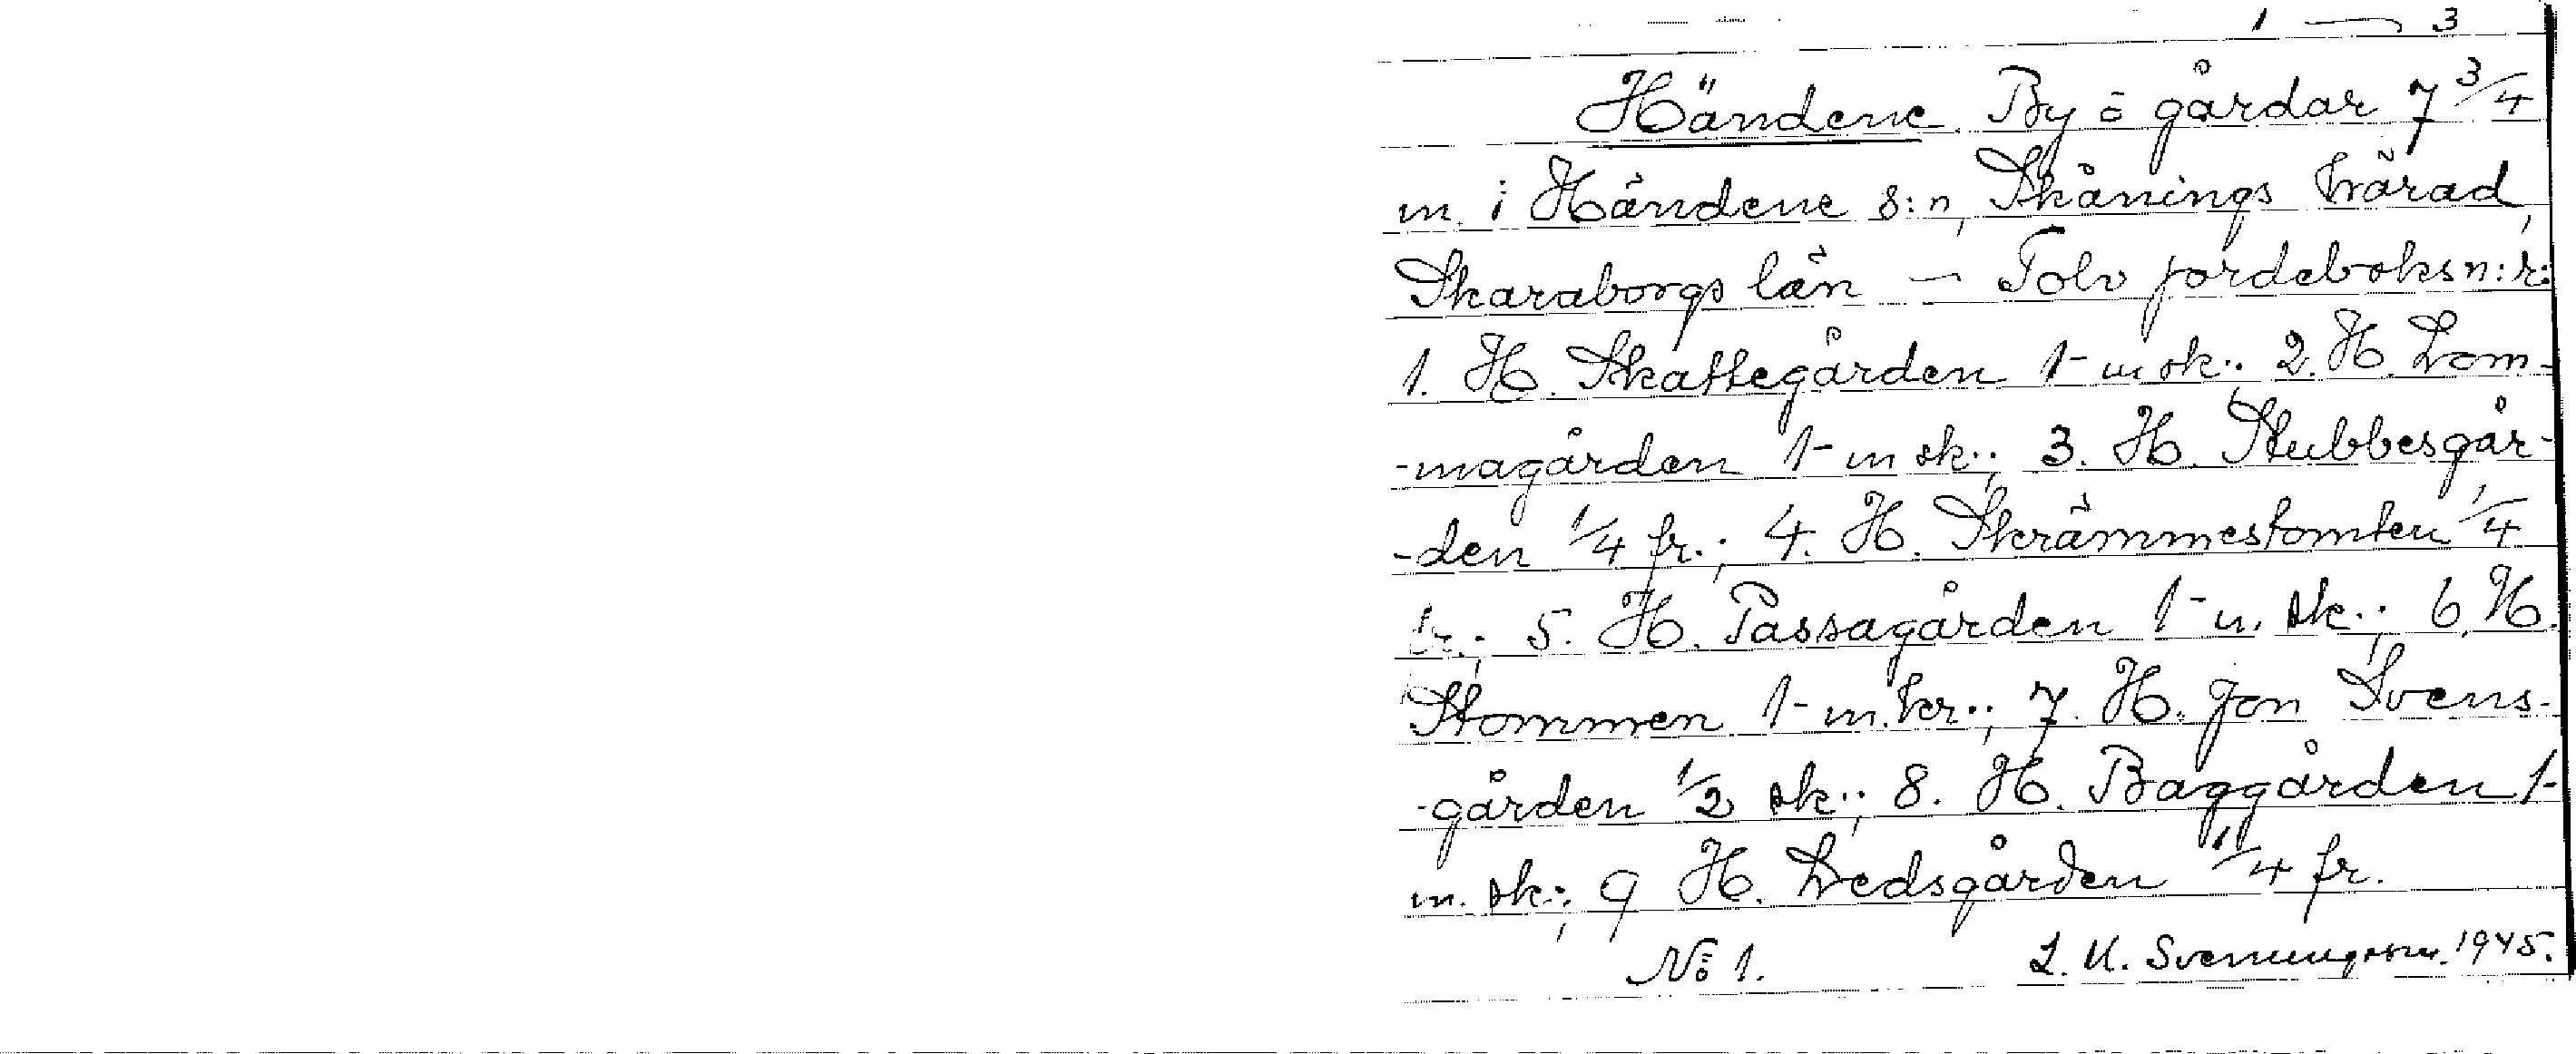 1 — 3
Händene By = gårdar 7 3/4
m. i Händene s:n, Skånings härad,
Skaraborgs län — Tolv jordeboksn:r:
1. H. Skattegården 1- m sk.; 2. H. Lom-
-magården 1- m sk.; 3. H. Stubbesgår-
-den 1/4 fr.; 4. H. Skrämmestomten 1/4
fr.; 5. H. Passagården 1- m. sk.; 6. H.
Stommen 1- m. kr.; 7. H. Jon Svens-
-gården 1/2 sk.; 8. H. Baggården 1-
m. sk.; 9 H. Ledsgården 1/4 fr.
No 1. 1945.